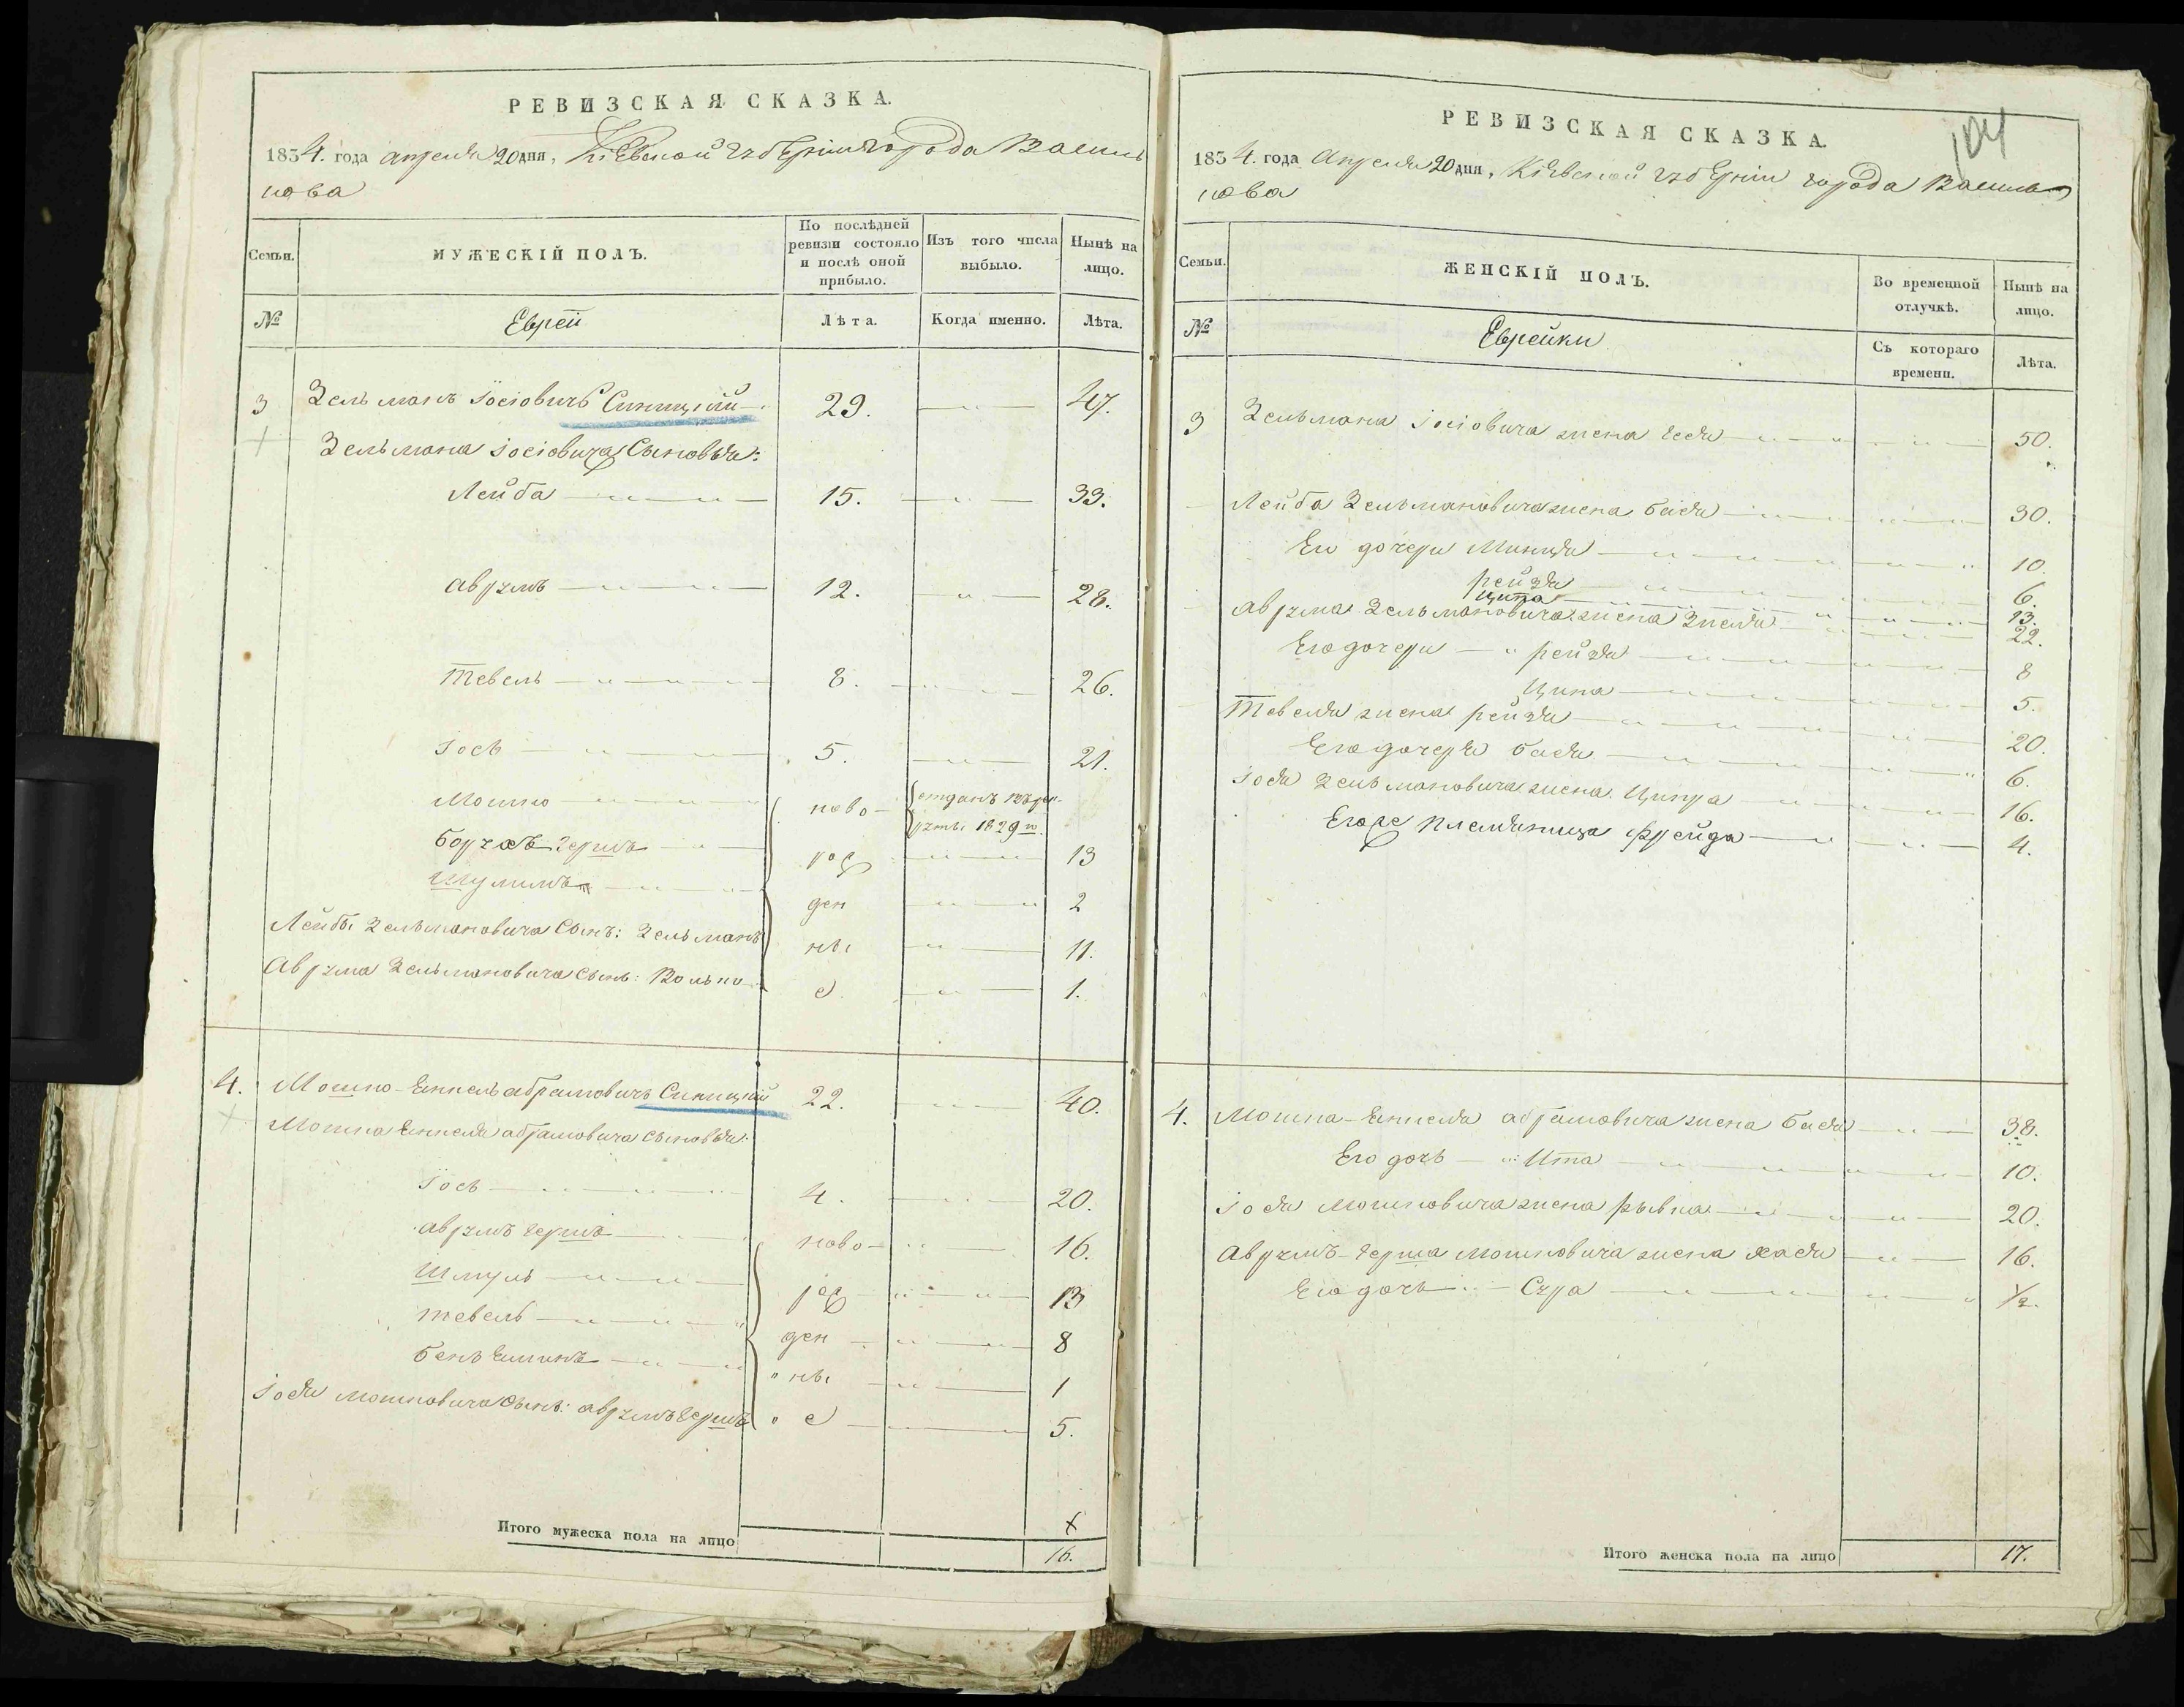 РЕВИЗСКАЯ СКАЗКА.
1834. года апреля 20 дня, Кіевской губерніи города Василь
кова
Семьи.
МУЖЕСКІЙ ПОЛЪ.
По послѣдней ревизіи состояло и послѣ оной прибыло.
Изъ того числа выбыло.
Нынѣ на лицо.
№
Евреи
Лѣта.
Когда именно.
Лѣта.
3 Зельманъ Іосіовичъ Синицкій 29. 47.
Зельмана Іосіовича Сыновья:
Лейба 15. 33.
Аврумъ 12. 28.
Тевель 8. 26.
Іось 5. 21.
Мошко ново- отданъ въ рек-
руты 1829 го.
Борухъ Гершъ рож 13
Шулимъ ден 2
Лейбы Зельмановича Сынъ: Зельманъ ны 11.
Аврума Зельмановича Сынъ: Волько е 1.
4. Мошко-Янкель Абрамовичъ Синицкій 22. 40.
Мошка Янкеля Абрамовича Сыновья:
Іось 4. 20.
Аврумъ Гершъ ново- 16.
Шмуль рож 13
Тевель ден 8
Беньяминъ ны 1
Іося Мошковича Сынъ: Аврумъ Гершъ е 5.
Итого мужеска пола на лицо 16.
РЕВИЗСКАЯ СКАЗКА.
104
1834. года Апреля 20 дня, Кіевской губерніи города Василь
кова
Семьи.
ЖЕНСКІЙ ПОЛЪ.
Во временной отлучкѣ.
Нынѣ на лицо.
№
Еврейки
Съ котораго времени.
Лѣта.
3 Зельмана Іосіовича жена Гося 50.
Лейба Зельмановича жена Бася 30.
Его дочери Миндя 10.
Рейзя 6.
Ципа 13.
Аврума Зельмановича жена Зиселя 22.
Его дочери Рейзя 8
Ципа 5.
Тевеля жена Рейзя 20.
Его дочеря Бася 6.
Іося Зельмановича жена Ципра 16.
Егоже племяница Фрейда 4.
4. Мошка-Янкеля Абрамовича жена Бася 38.
Его дочь Ита 10.
Іося Мошковича жена Рывка 20.
Аврумъ-Герша Мошковича жена Хася 16.
Его дочь Сура 1/2.
Итого женска пола на лицо 17.